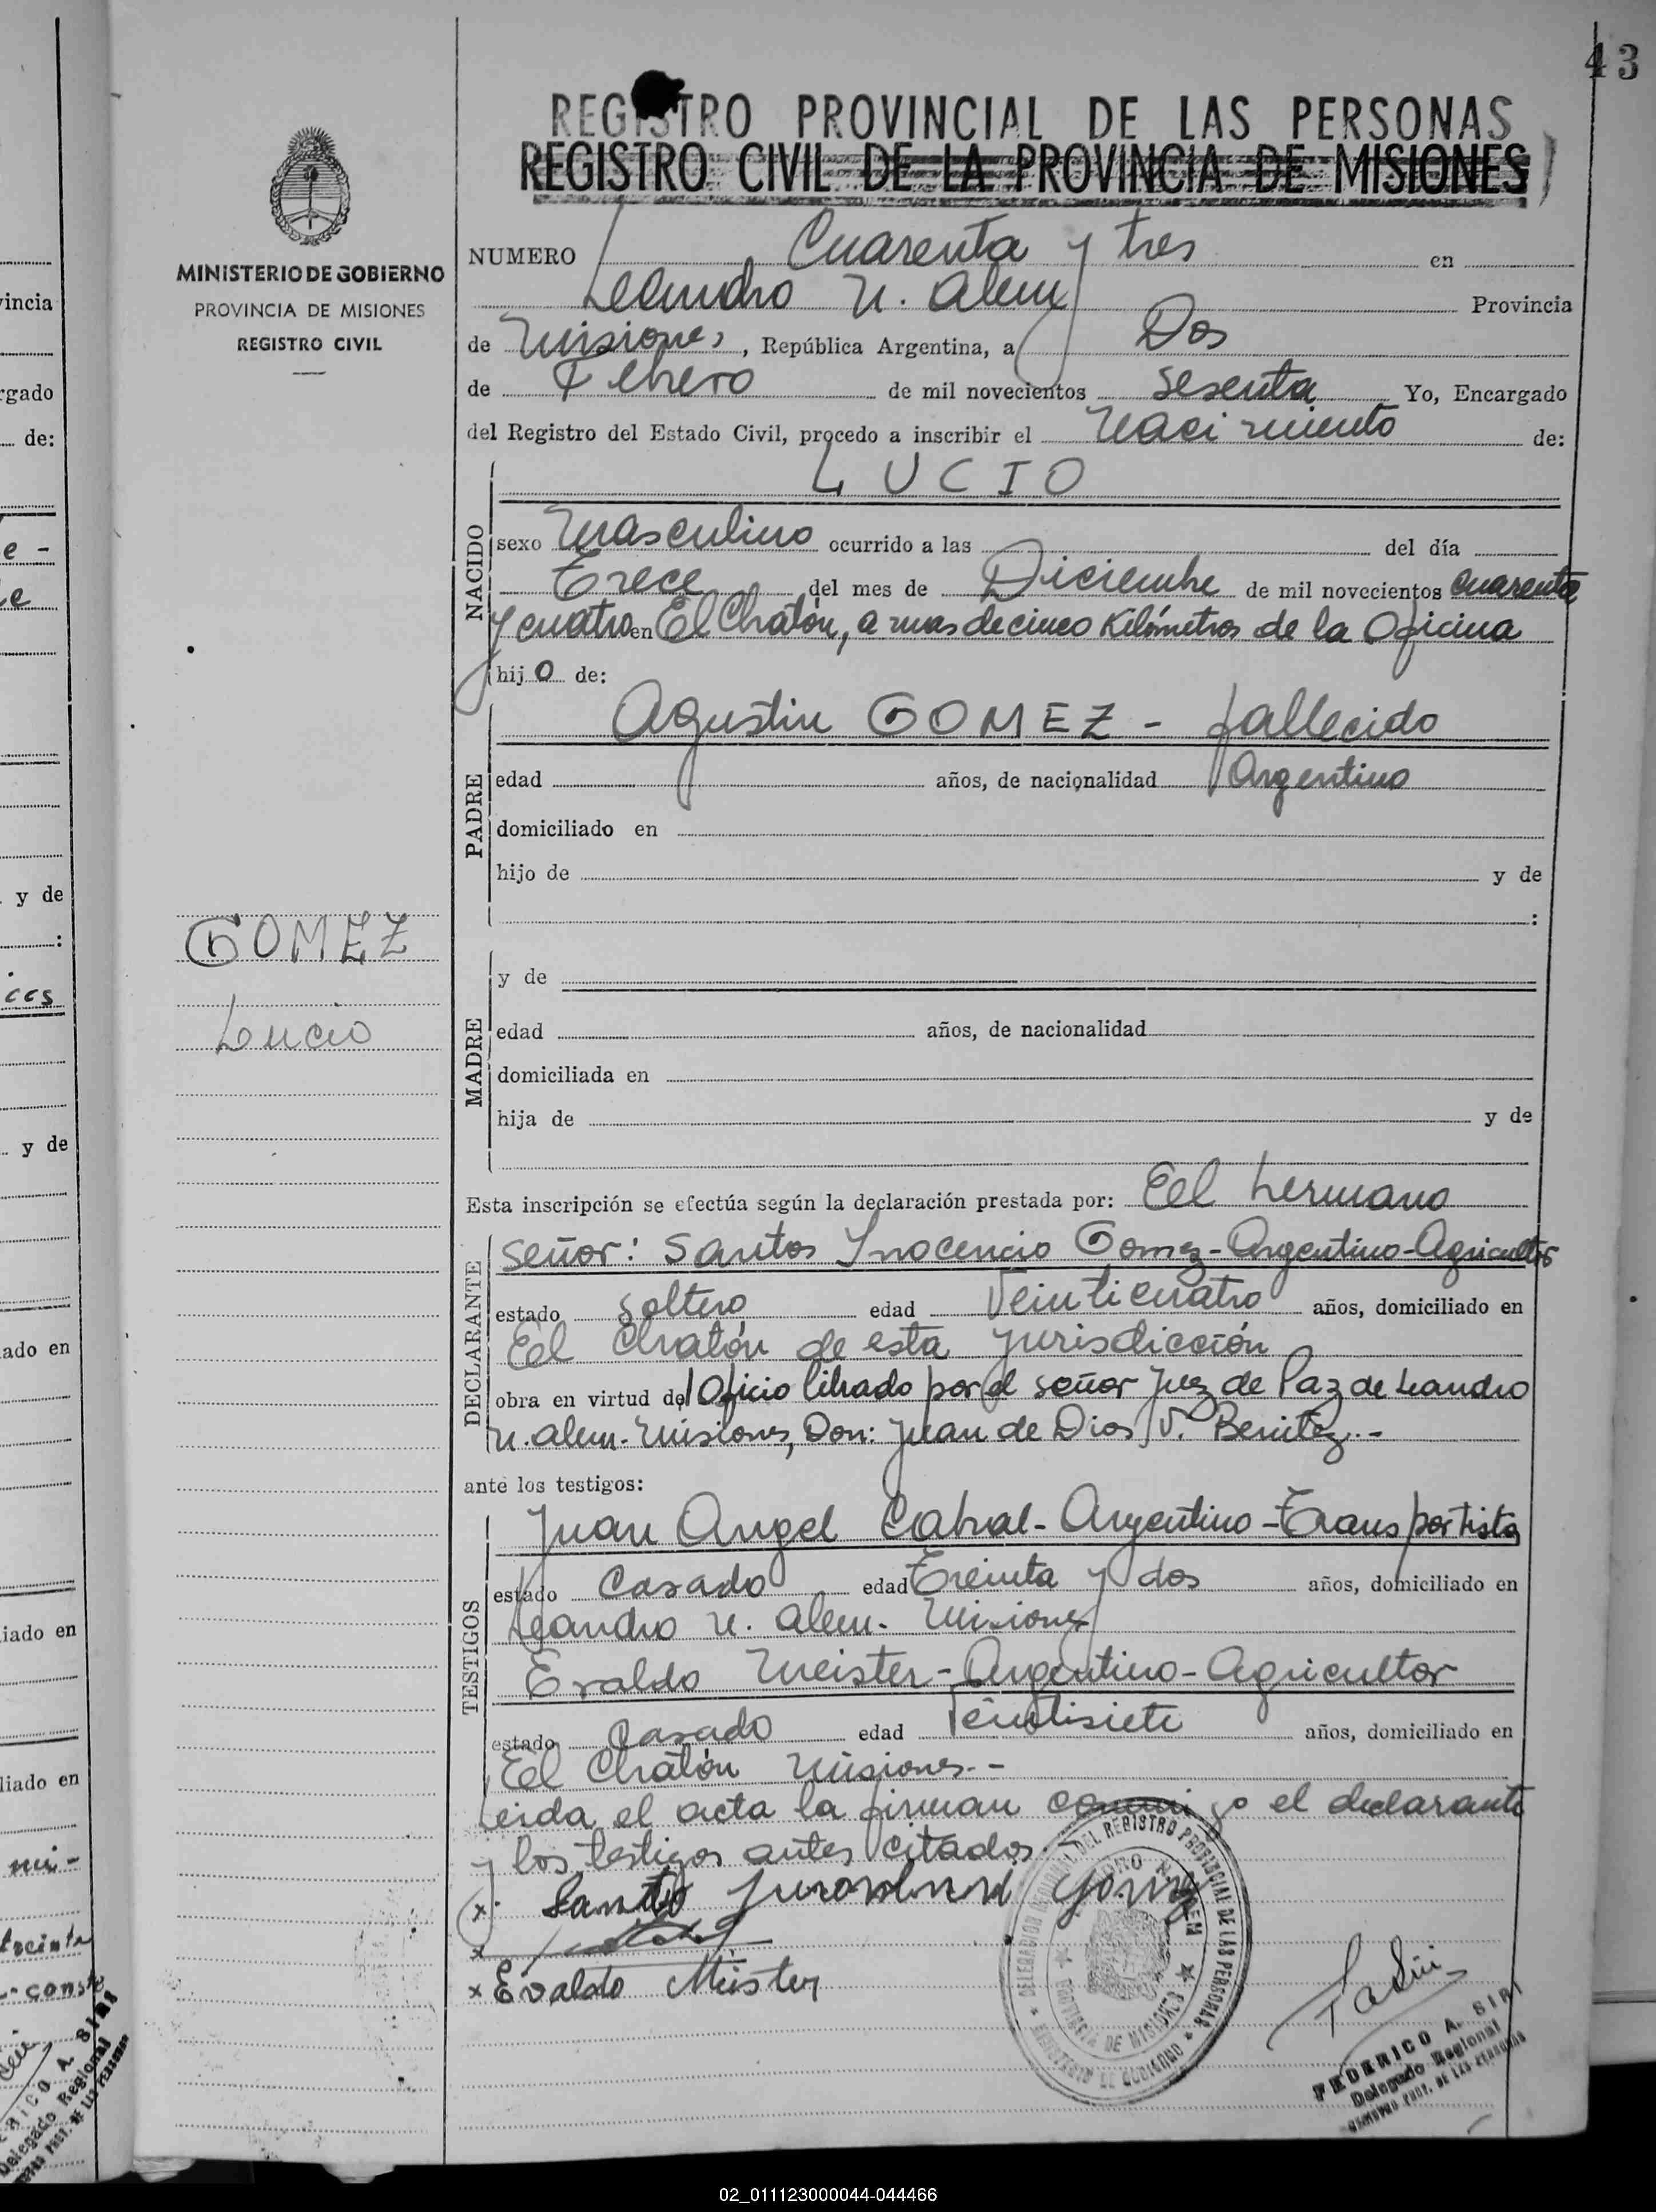 43
REGISTRO PROVINCIAL DE LAS PERSONAS
REGISTRO CIVIL DE LA PROVINCIA DE MISIONES
MINISTERIO DE GOBIERNO
PROVINCIA DE MISIONES
REGISTRO CIVIL
NUMERO Cuarenta y tres en
Leandro N. Alem Provincia
de Misiones, República Argentina, a Dos
de Febrero de mil novecientos sesenta Yo, Encargado
del Registro del Estado Civil, procedo a inscribir el Nacimiento de:
NACIDO
LUCIO
sexo Masculino ocurrido a las del día
Trece del mes de Diciembre de mil novecientos cuarenta
y cuatro en El Chatón, a mas de cinco Kilómetros de la Oficina
hijo de:
PADRE
Agustin GOMEZ - fallecido
edad años, de nacionalidad Argentino
domiciliado en
hijo de y de
:
GOMEZ
Lucio
MADRE
y de
edad años, de nacionalidad
domiciliada en
hija de y de
Esta inscripción se efectúa según la declaración prestada por: El hermano
DECLARANTE
Señor: Santos Inocencio Gomez-Argentino-Agricultor
estado soltero edad Veinticuatro años, domiciliado en
El Chatón de esta jurisdicción
obra en virtud de Oficio librado por el señor Juez de Paz de Leandro
N. Alem. Misiones, Don: Juan de Dios V. Benitez.-
ante los testigos:
TESTIGOS
Juan Angel Cabral-Argentino-Transportista
estado Casado edad Treinta y dos años, domiciliado en
Leandro N. Alem. Misiones
Evaldo Meister-Argentino-Agricultor
estado Casado edad Veintisiete años, domiciliado en
El Chatón Misiones.-
Leida el acta la firman conmigo el declarante
y los testigos antes citados.
x Santo Gomez
x
x Evaldo Meister
DELEGACION DEL REGISTRO PROVINCIAL DE LAS PERSONAS
PROVINCIA DE MISIONES
MINISTERIO DE GOBIERNO
FEDERICO A. SIRI
Delegado Regional
REGISTRO PROV. DE LAS PERSONAS
02_011123000044-044466